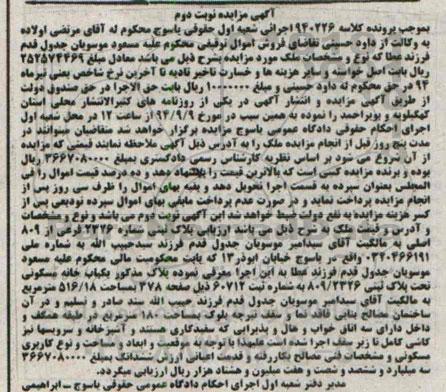 آگهی مزایده نوبت دوم
بموجب پرونده کلاسه ۹۴۰۲۲۶ اجرائی شعبه اول حقوقی یاسوج محکوم له آقای مرتضی اولاده
به وکالت از داود حسینی تقاضای فروش اموال توقیفی محکوم علیه مسعود موسویان جدول قدم
فرزند عطا که نوع و مشخصات ملک مورد مزایده بشرح ذیل می باشد معادل مبلغ ۲۵۲۵۷۴۴۶۹
ریال بابت اصل خواسته و سایر هزینه ها و خسارت تاخیر تادیه تا آخرین نرخ شاخص یعنی تیرماه
۹۴ در حق محکوم له داود حسینی و مبلغ ۱۰۰۰۰۰۰۰ ریال بابت حق الاجرا در حق صندوق دولت
از طریق آگهی مزایده و انتشار آگهی در یکی از روزنامه های کثیرالانتشار محلی استان
کهگیلویه و بویراحمد را نموده به همین سبب در مورخ ۹۴/۹/۹ از ساعت ۱۲ در محل شعبه اول
اجرای احکام حقوقی دادگاه عمومی یاسوج مزایده برگزار خواهد شد متقاضیان میتوانند در
مدت پنج روز قبل از انجام مزایده ملک را به آدرس ذیل آگهی ملاحظه نمایند قیمتی که مزایده
از آن شروع می شود بر اساس نظریه کارشناس رسمی دادگستری بمبلغ ۳۶۶۷۰۸۰۰۰۰ ریال
بوده و برنده مزایده کسی است که بالاترین قیمت را پیشنهاد دهد و ده درصد قیمت اموال را فی
المجلس بعنوان سپرده به قسمت اجرا تحویل دهد و بقیه بهای اموال را ظرف سی روز پس از
انجام مزایده پرداخت نماید و در صورت عدم پرداخت مابقی بهای اموال سپرده تودیعی پس از
کسر هزینه مزایده به نفع دولت ضبط خواهد شد این آگهی نوبت دوم می باشد و نوع و مشخصات
و آدرس و قیمت ملک به شرح ذیل می باشد ارزیابی پلاک ثبتی شماره ۲۳۲۶ فرعی از ۸۰۹
اصلی به مالکیت آقای سیدامیر موسویان جدول قدم فرزند سیدحبیب الله به شماره ملی
۰۳۷۰۴۶۶۱۹۱ واقع در یاسوج خیابان ابوذر ۱۳ که بابت محکومیت مالی محکوم علیه مسعود
موسویان جدول قدم فرزند عطا به این اجرا معرفی نموده پلاک مذکور یکباب خانه مسکونی
تحت پلاک ثبتی ۸۰۹/۲۳۲۶ به شماره ثبت ۶۰۷۱۲ ذیل صفحه ۳۷۸ بمساحت ۵۱۶/۱۸ مترمربع
به مالکیت آقای سیدامیر موسویان جدول قدم فرزند حبیب الله سند صادر و تسلیم و در آن
ساختمان مصالح بنایی فاقد نما و سقف تیرچه بلوک به مساحت ۱۸۰ مترمربع در طبقه همکف و
داخل دارای سه اتاق خواب و هال و پذیرایی که سفیدکاری هستند و آشپزخانه و سرویسها نیز
کاشی کامل تا زیر سقف اجرا شده است علیهذا با توجه به موقعیت و ابعاد و مساحت و نوع کاربری
مسکونی و مشخصات فنی مصالح بکاررفته و قدمت اعیانی ارزش ششدانگ بمبلغ ۳۶۶۷۰۸۰۰۰۰
سه میلیارد و ششصد و شصت و هفت میلیون و هشتاد هزار ریال ارزیابی میگردد.
مدیر دفتر شعبه اول اجرای احکام دادگاه عمومی حقوقی یاسوج – ابراهیمی